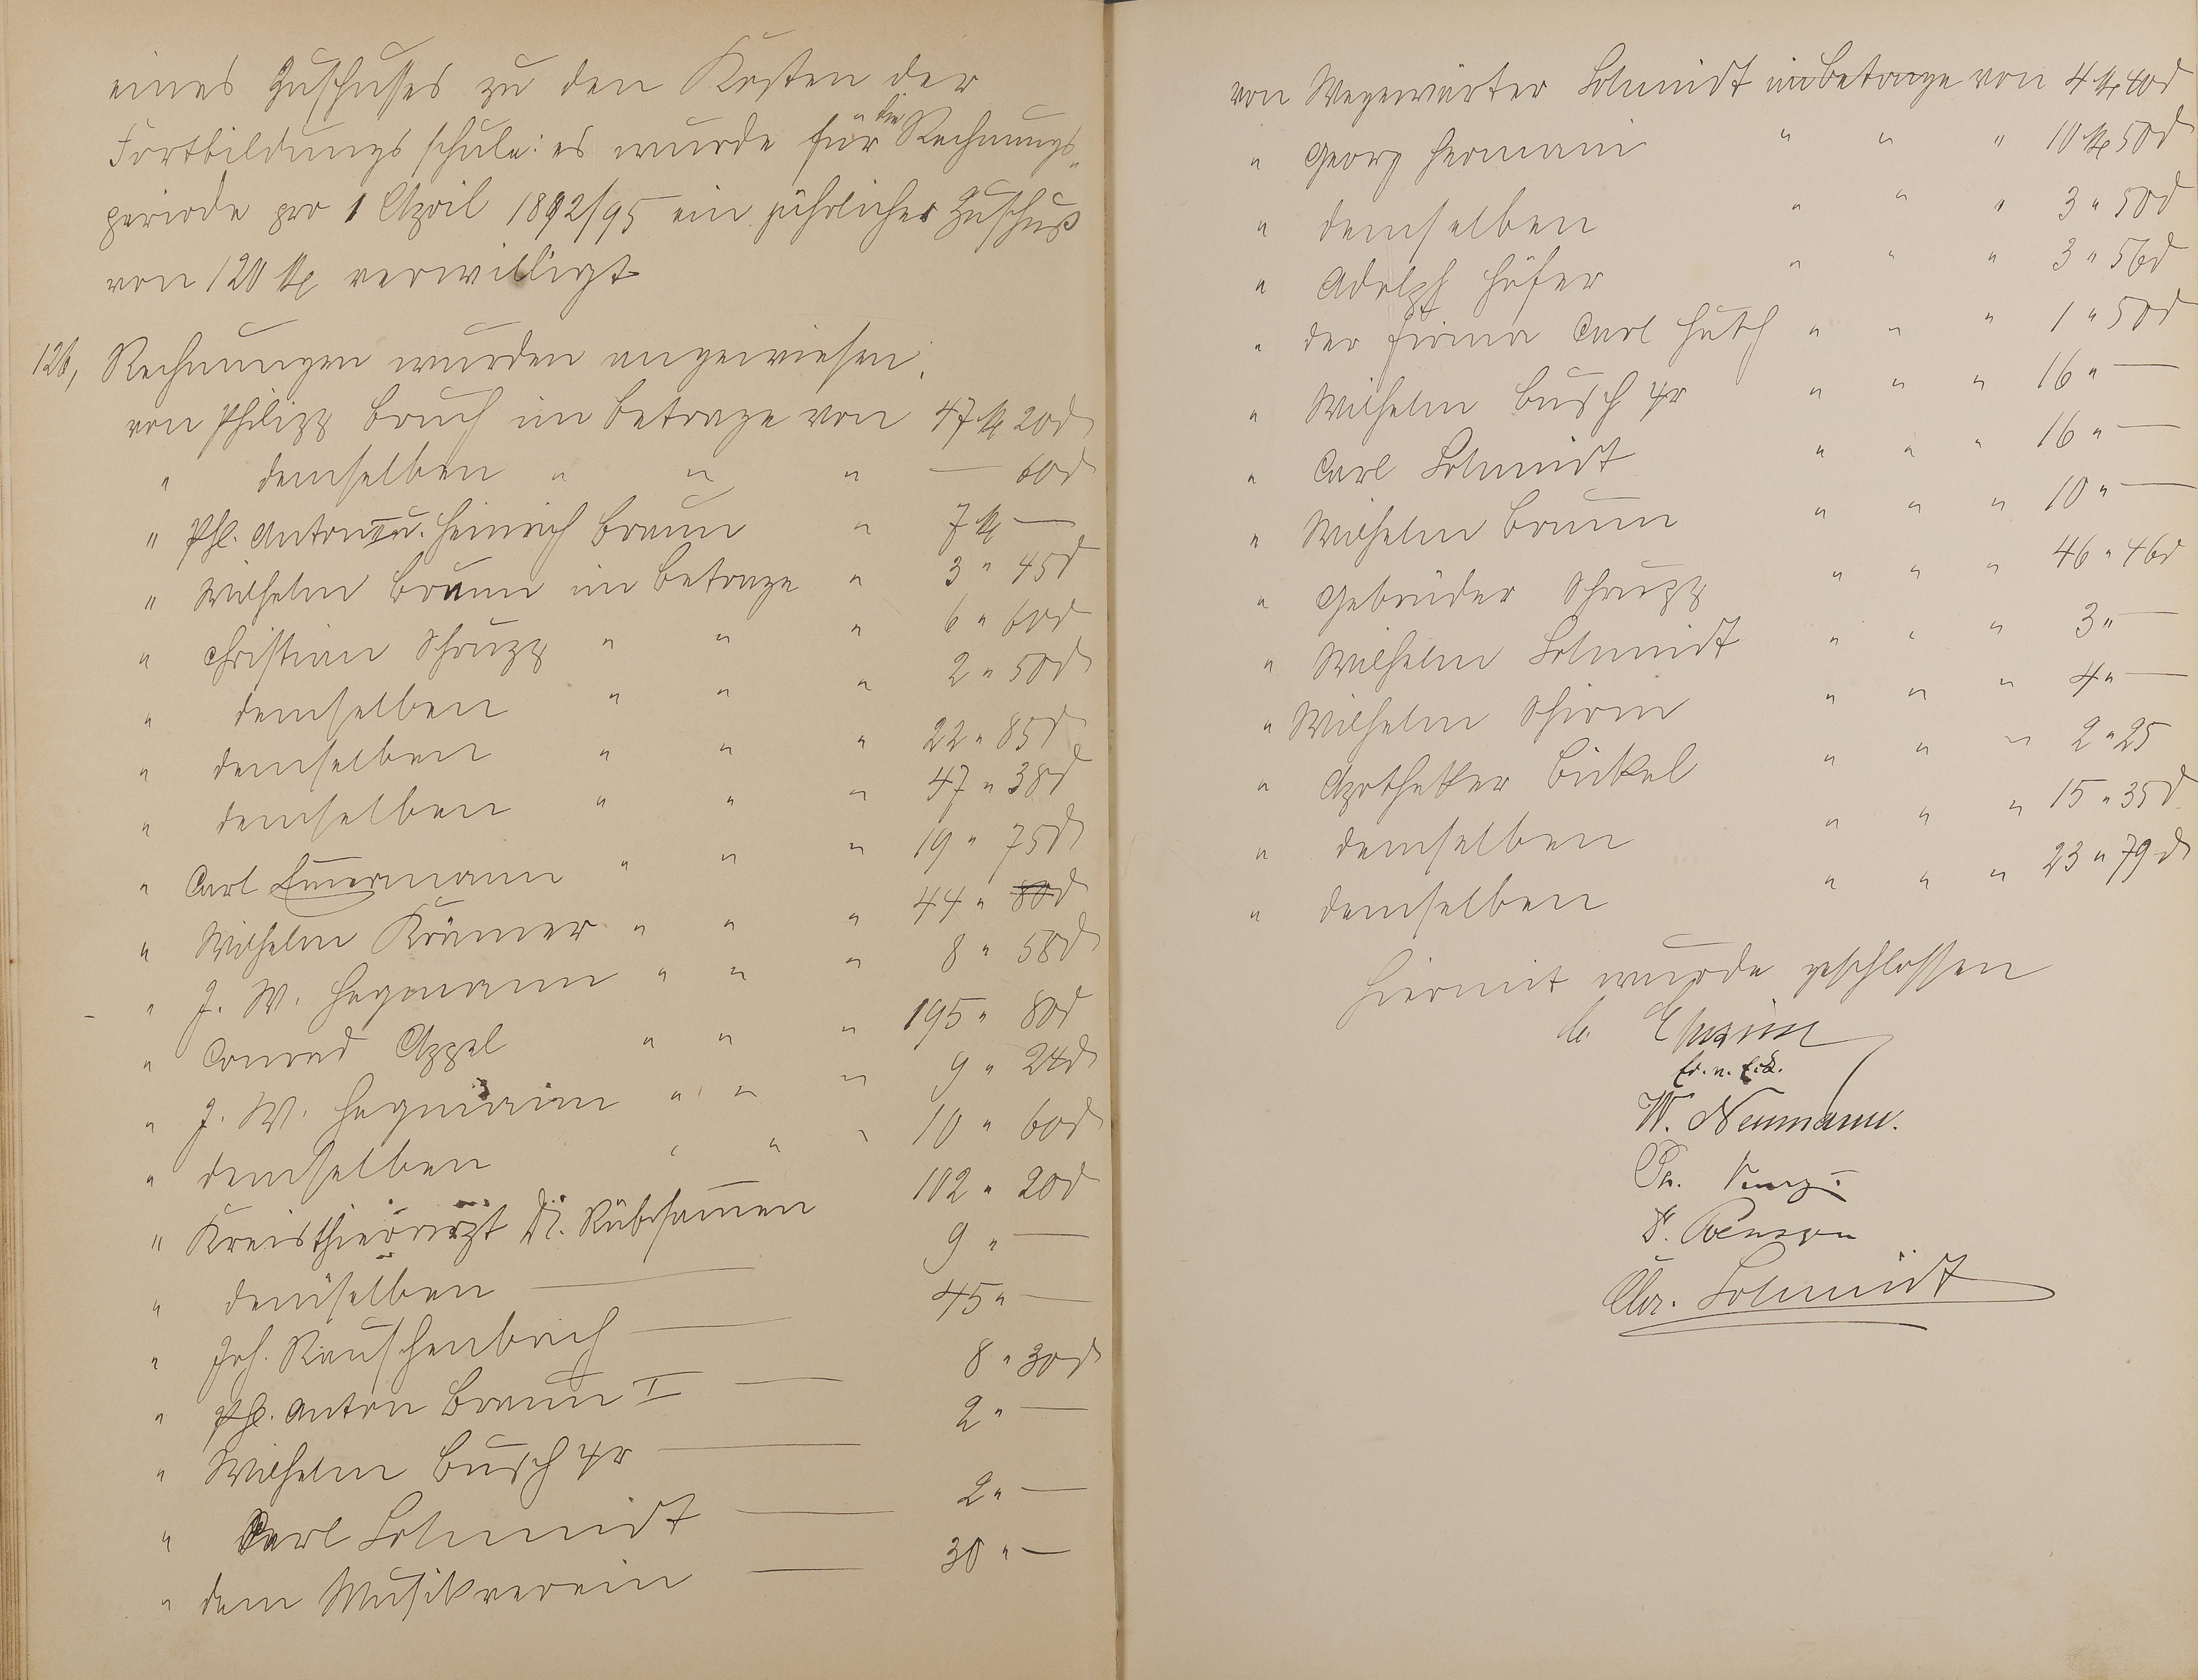 eines Zuschusses zu den Kosten der
Fortbildungsschule: es wurde für die Rechnungs-
periode pro 1 April 1892/95 ein jährlicher Zuschuß
von 120 M verwilligt
126, Rechnungen wurden angewiesen:
von Philipp Bruch im Betrage von 47 M 20 d
" demselben " " " — 60 d
" Phl. Anton u. Heinrich Braun " 7 M —
" Wilhelm Braun im Betrage " 3 " 45 d
" Christian Schrupp " " " 6 " 60 d
" demselben " " " 2 " 50 d
" demselben " " " 22 " 85 d
" demselben " " " 47 " 38 d
" Carl Zimmermann " " " 19 " 75 d
" Wilhelm Krämer " " " 44 " 80 d
" J. W. Hegmann " " " 8 " 58 d
" Conrad Appel " " " 195 " 80 d
" J. W. Hegmann " " " 9 " 24 d
" demselben " " " 10 " 60 d
" Kreisthierarzt Dr. Rübsamen 102 " 20 d
" demselben — 9 " —
" Joh. Rauschenbach — 45 " —
" Phl. Anton Braun I — 8 " 30 d
" Wilhelm Busch 4r — 2 " —
" Carl Schmidt — 2 " —
" dem Musikverein — 30 " —
von Wegewärter Schmidt im Betrage von 4 M 40 d
" Georg Hermani " " " 10 M 50 d
" demselben " " " 3 " 50 d
" Adolph Höfer " " " 3 " 56 d
" der Firma Carl Huth " " " 1 " 50 d
" Wilhelm Busch 4r " " " 16 " —
" Carl Schmidt " " " 16 " —
" Wilhelm Braun " " " 10 " —
" Gebrüder Schrupp " " " 46 " 46 d
" Wilhelm Schmidt " " " 3 " —
" Wilhelm Schirm " " " 4 " —
" Apotheker Bickel " " " 2 " 25
" demselben " " " 15 " 35 d
" demselben " " " 23 " 79 d
Hiermit wurde geschlossen
W. Neumann.
Ph.
Chr. Schmidt